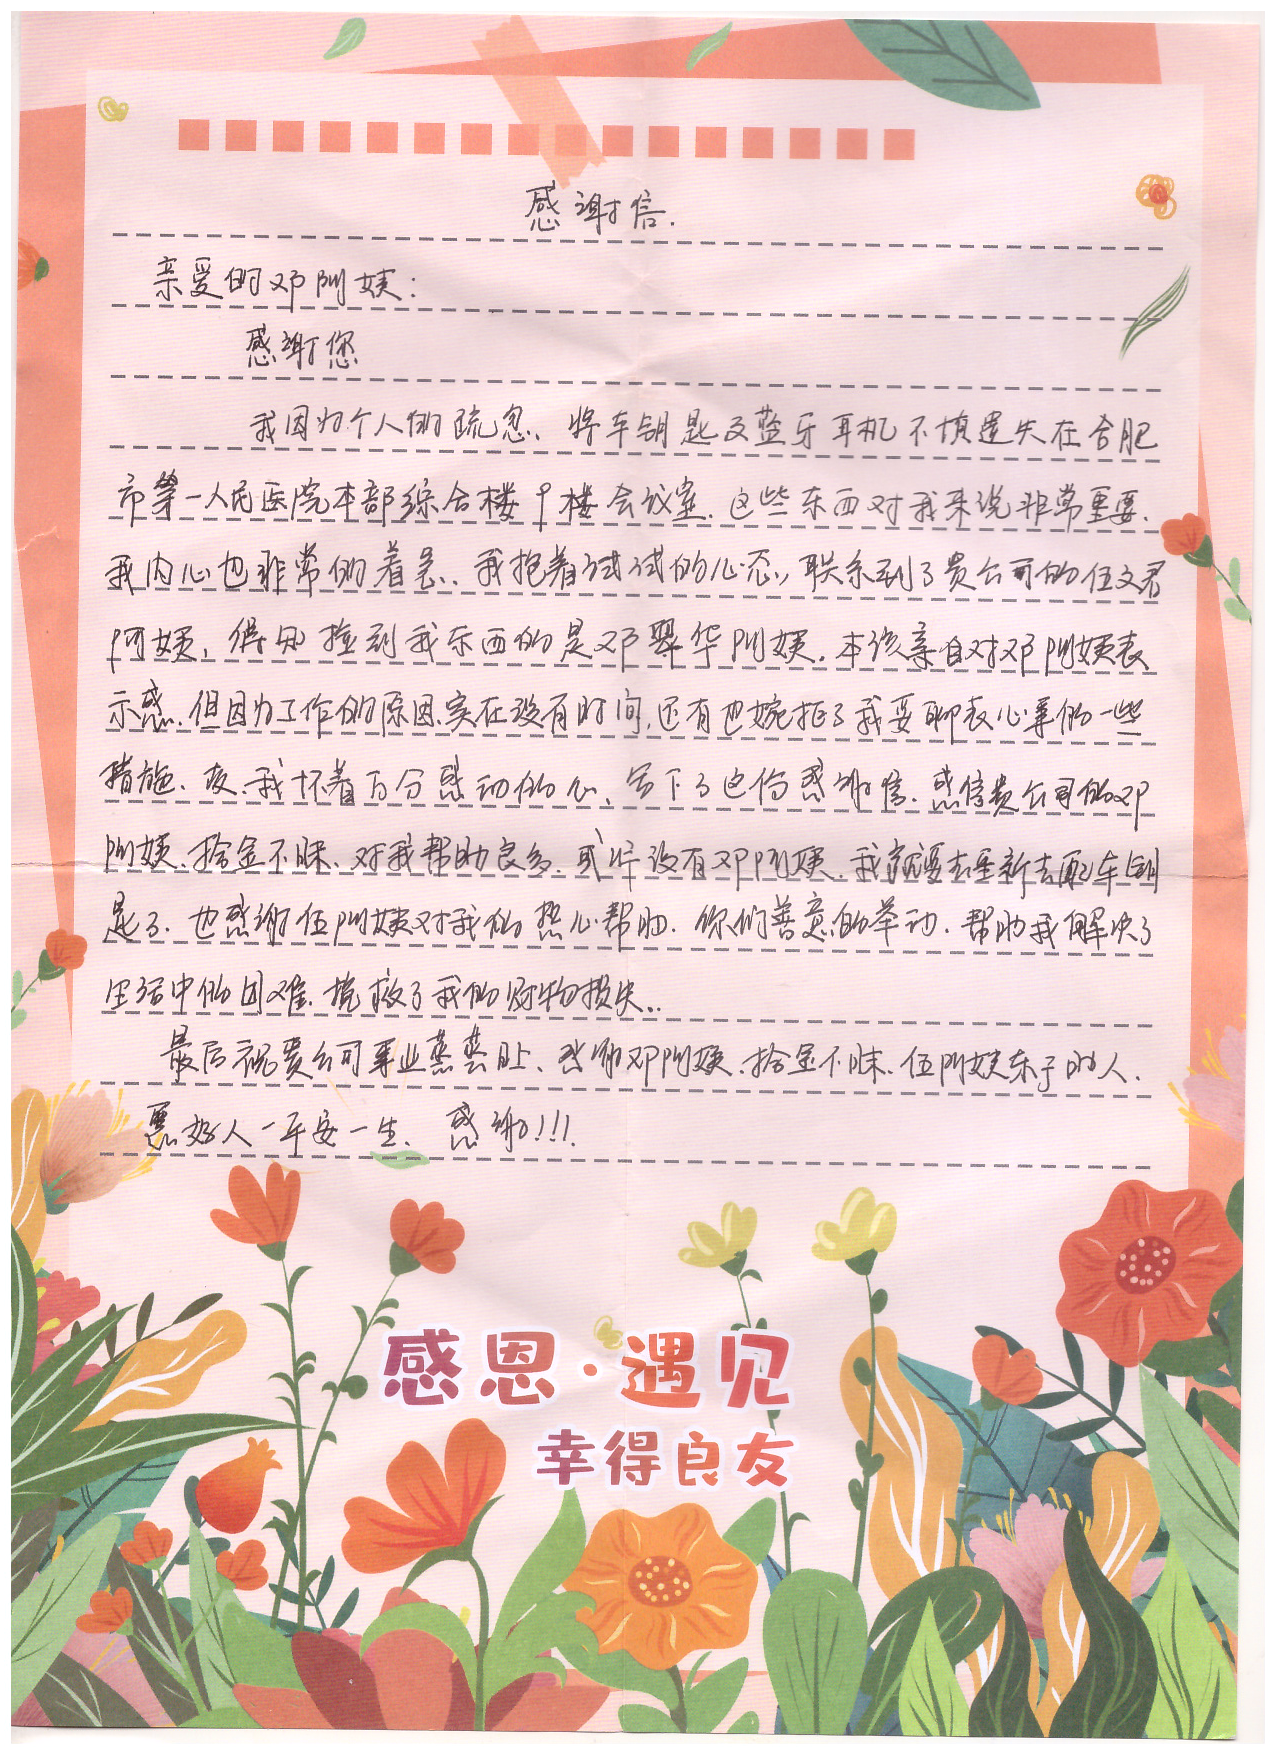 感谢信.
亲爱的邓阿姨:
感谢您
我因为个人的疏忽、将车钥匙及蓝牙耳机不慎遗失在合肥
市第一人民医院本部综合楼9楼会议室.这些东西对我来说非常重要.
我内心也非常的着急.我抱着试试的心态,联系到了贵公司的伍文君
阿姨,得知捡到我东西的是邓翠华阿姨.本该亲自对邓阿姨表
示感.但因为工作的原因.实在没有时间,还有也婉拒了我要聊表心事的一些
措施.故.我怀着万分感动的心、写下了这份感谢信.感信贵公司的邓
阿姨.拾金不昧.对我帮助良多.或许没有邓阿姨.我就要去重新去配车钥
匙了.也感谢伍阿姨对我的热心帮助.你们善意的举动.帮助我解决了
生活中的困难.挽救了我的财物损失..
最后祝贵公司事业蒸蒸日上、感谢邓阿姨.拾金不昧.伍阿姨乐于助人.
愿好人一平安一生.感谢!!!.
感恩·遇见
幸得良友